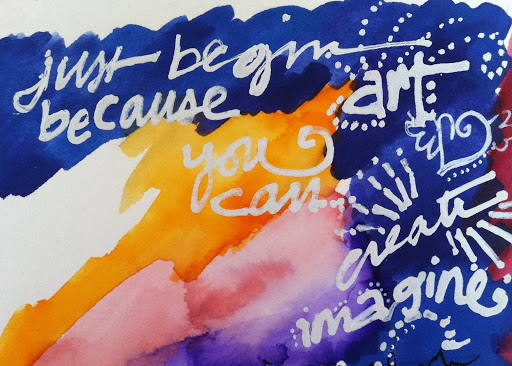 just begin
because
art
you
can
create
imagine